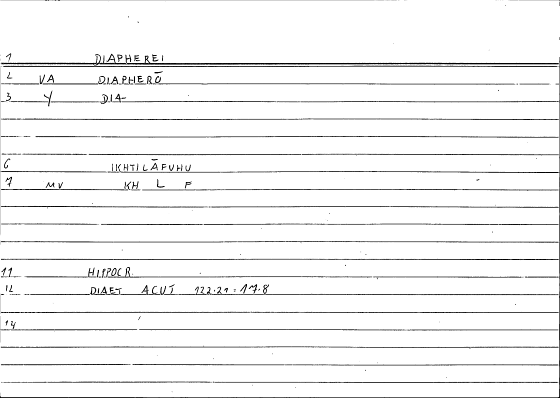 1 DIAPHEREI
2 VA DIAPHERŌ
3 Y DIA-
6 IKHTILĀFUHU
7 MV KH L F
11 HIPPOCR.
12 DIAET ACUT 122.21 = 17.8
14